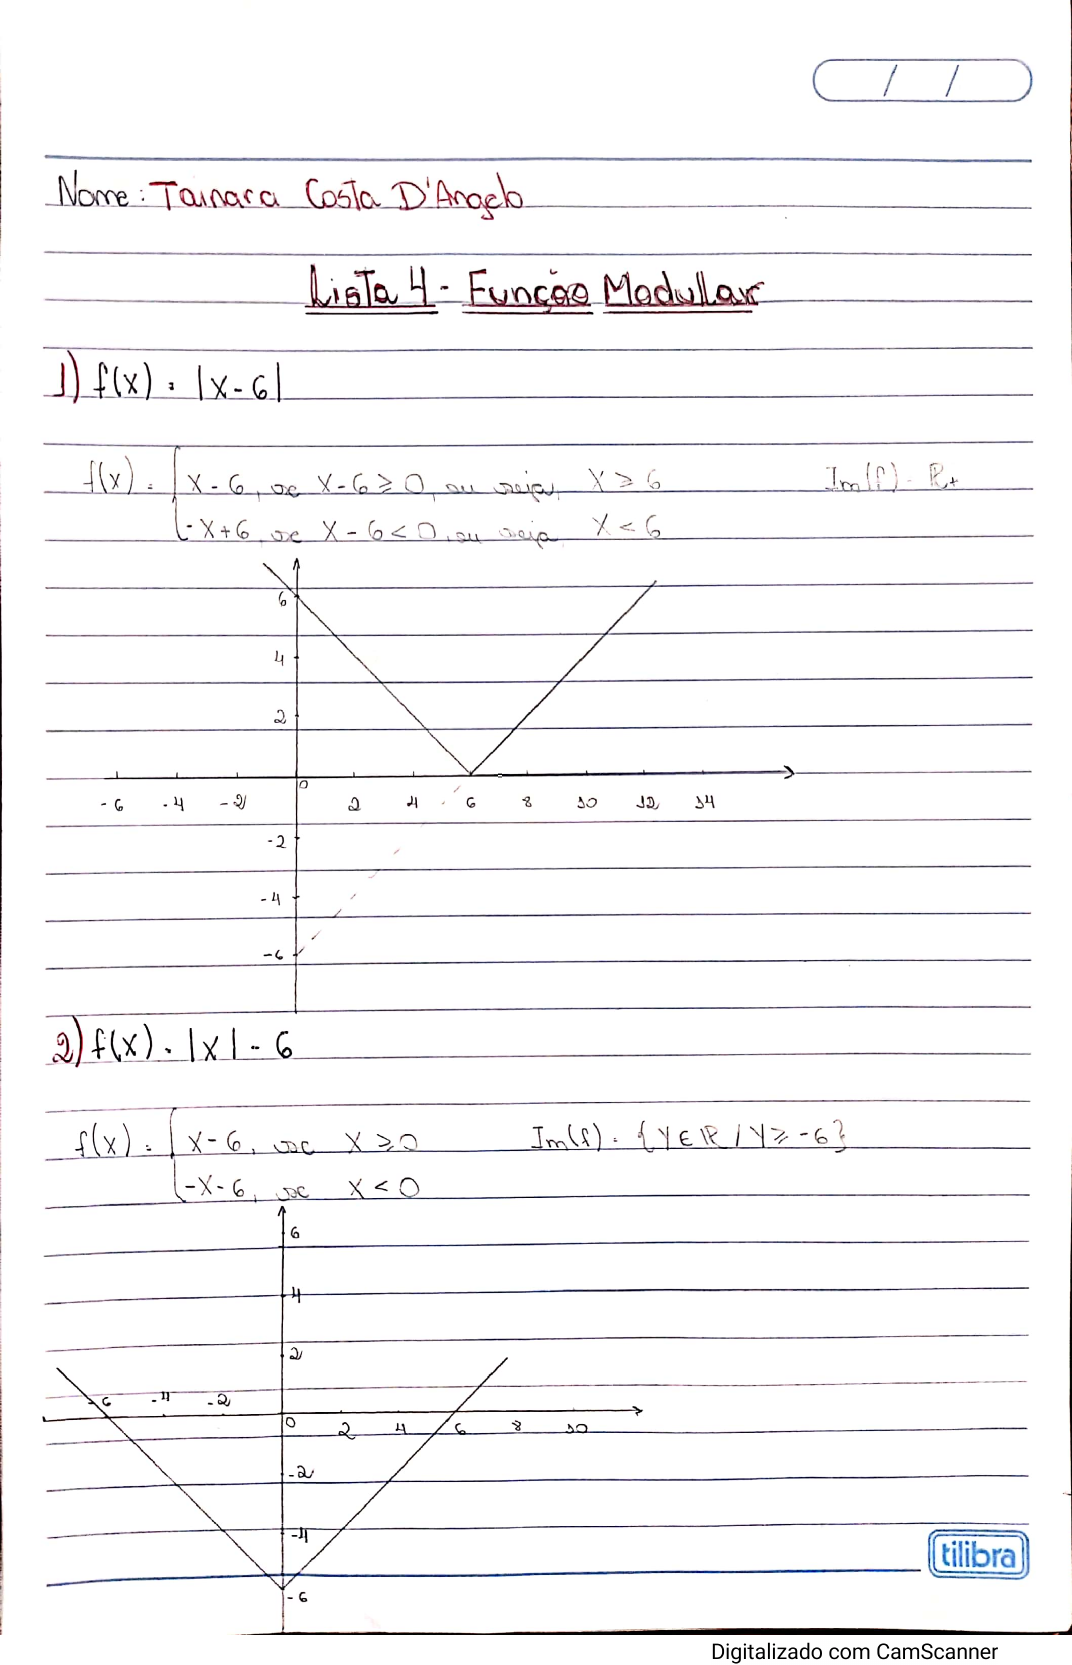 / /
Nome: Tainara Costa D'Angelo
Lista 4 - Função Modullar
1) f(x) = |x-6|
f(x) = { x-6, se x-6 ≥ 0, ou seja, x ≥ 6 Im(f) = R+
-x+6, se x-6 < 0, ou seja x < 6
6
4
2
0
-6 -4 -2 2 4 6 8 10 12 14
-2
-4
-6
2) f(x) = |x| - 6
f(x) = { x-6, se x ≥ 0 Im(f) = {y ∈ R / y ≥ -6}
-x-6, se x < 0
6
4
2
-6 -4 -2
0 2 4 6 8 10
-2
-4
-6
tilibra
Digitalizado com CamScanner